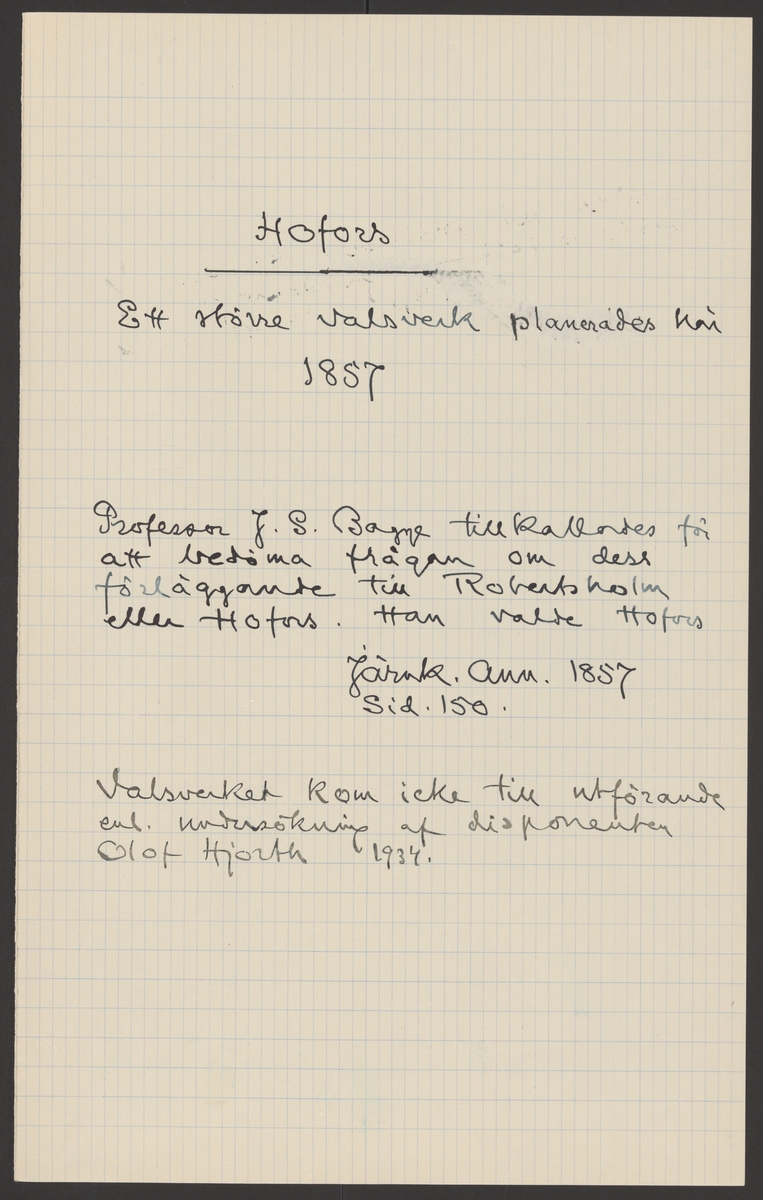 Hofors
Ett större valsverk planerades här
1857
Professor J. S. Bagge tillkallades för
att bedöma frågan om dess
förläggande till Robertsholm
eller Hofors. Han valde Hofors
Järnk. Ann. 1857
Sid. 150.
Valsverket kom icke till utförande
enl. undersökning af disponenten
Olof Hjorth 1934.